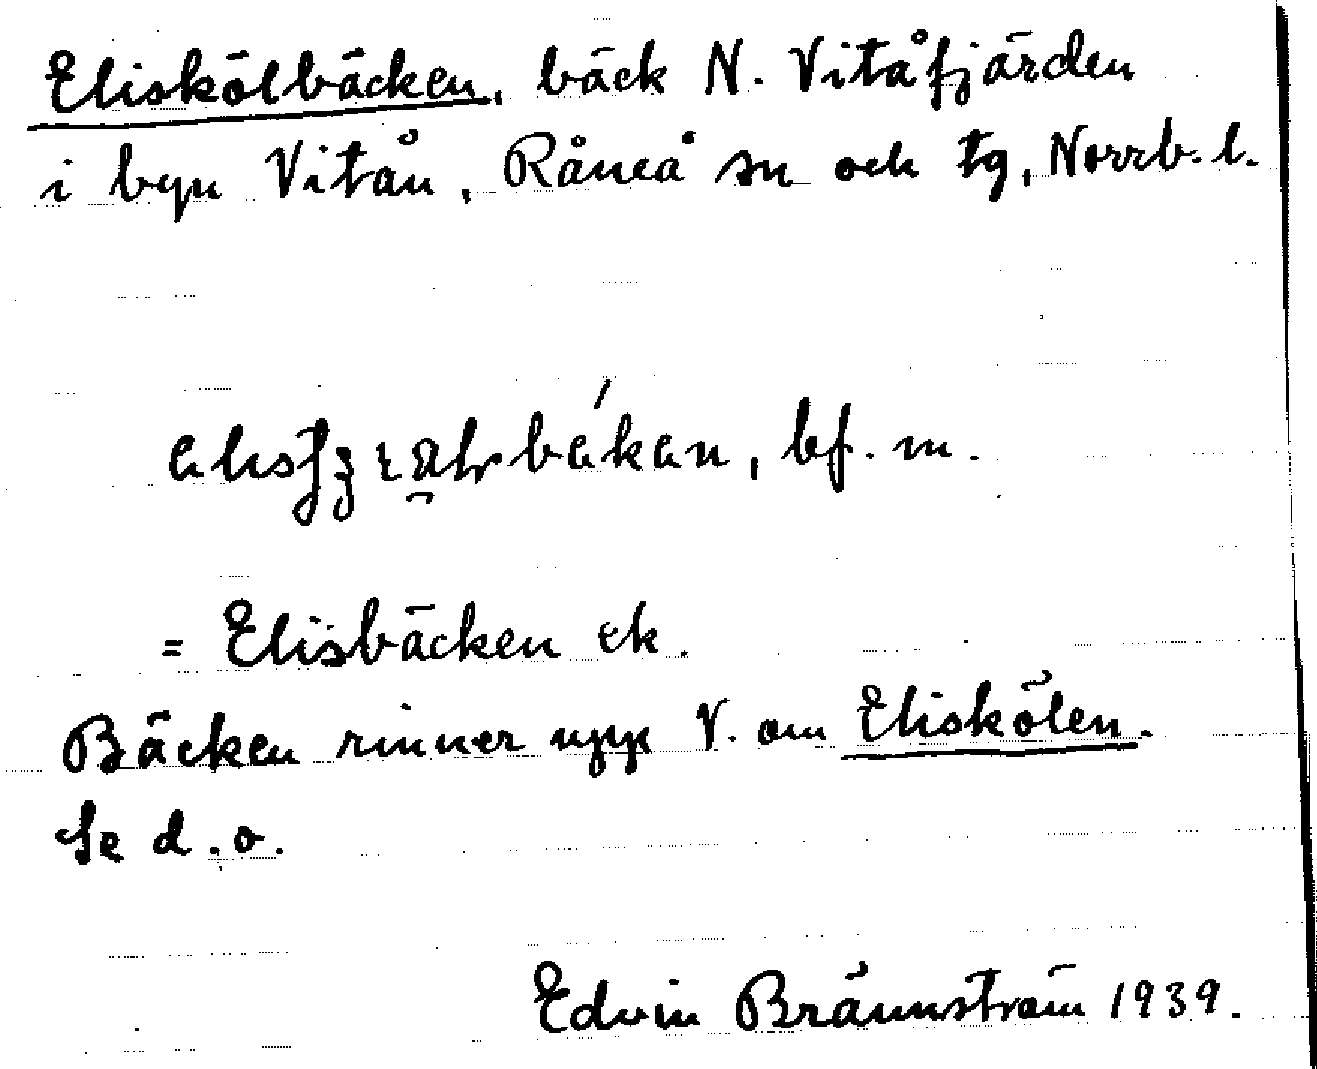 Eliskölbäcken, bäck N. Vitåfjärden
i byn Vitån, Råneå sn och tg, Norrb. l.
bf. m.
= Elisbäcken ek.
Bäcken rinner upp V. om Eliskölen.
Se d. o.
Edvin Brännström 1939.